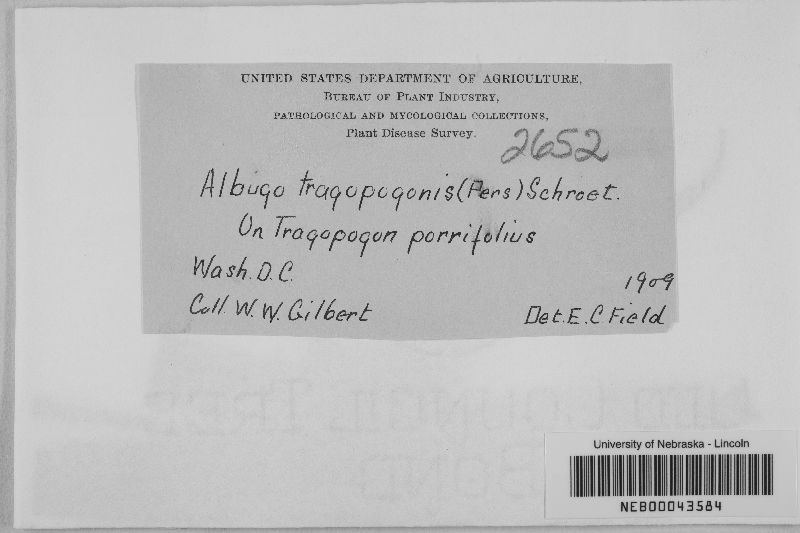 UNITED STATES DEPARTMENT OF AGRICULTURE,
BUREAU OF PLANT INDUSTRY,
PATHOLOGICAL AND MYCOLOGICAL COLLECTIONS,
Plant Disease Survey.
2652
Albugo tragopogonis (Pers) Schroet.
On Tragopogon porrifolius
Wash. D.C.
1909
Coll. W. W. Gilbert
Det. E. C. Field
University of Nebraska - Lincoln
NEB00043584